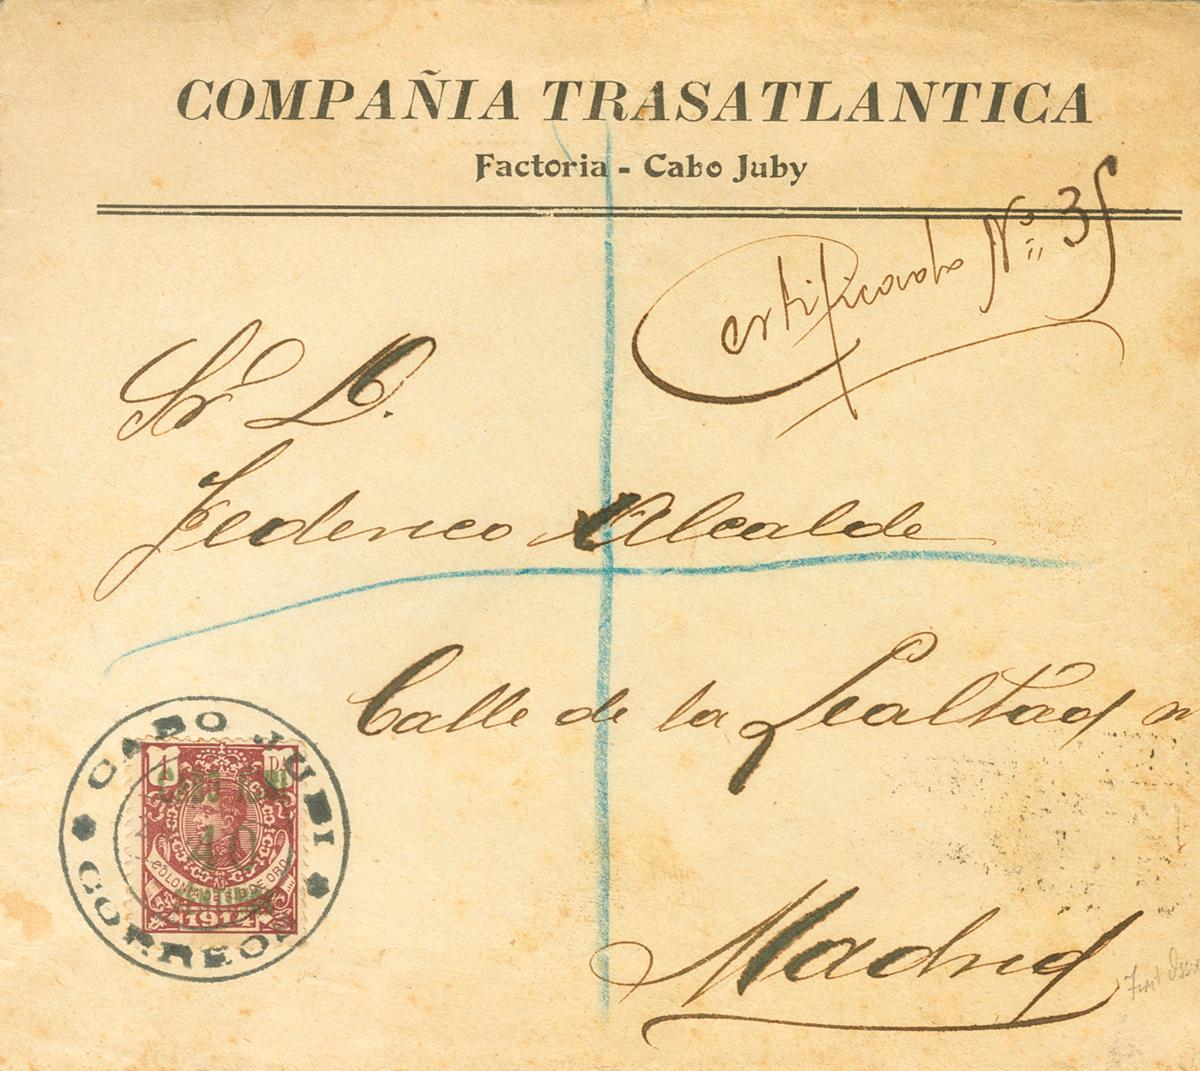 COMPAÑIA TRASATLANTICA
Factoria - Cabo Juby
Certificado Nº 35
Sr D.
Federico Alcalde
Calle de la Lealtad n
Madrid
CABO JUBI
CORREOS
1 
COLONIA DE RIO DE ORO
1914
40
First Issue